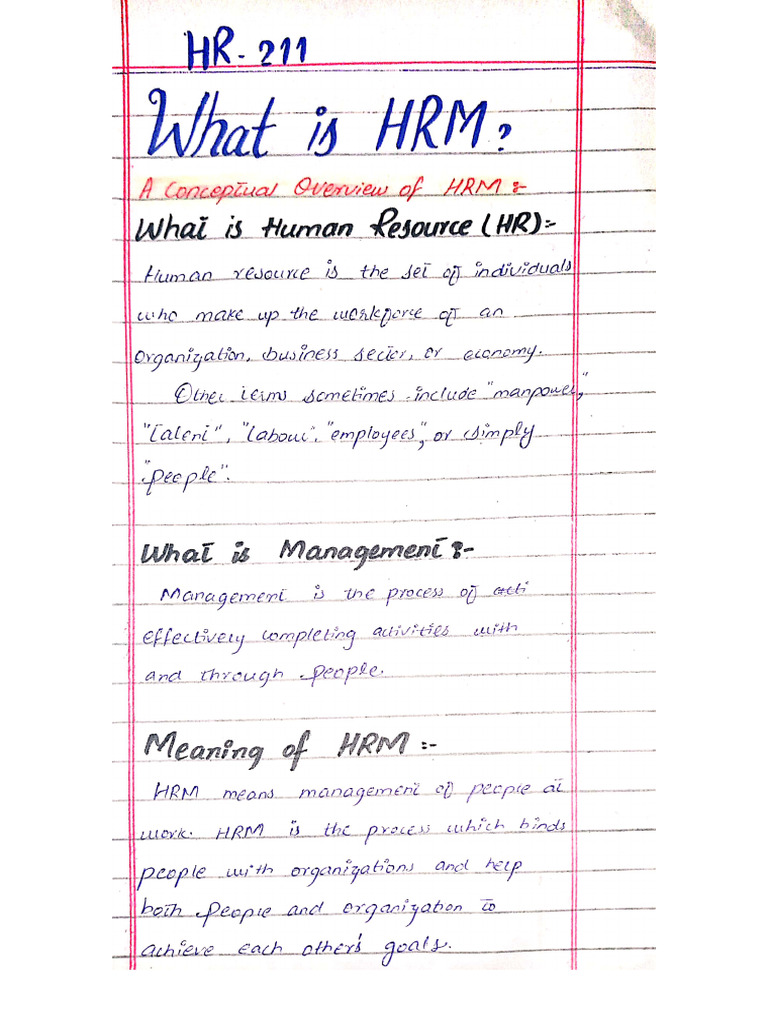 HR-211
What is HRM?
A Conceptual Overview of HRM :-
What is Human Resource (HR):-
Human resource is the set of individuals
who make up the workforce of an
organization, business sector, or economy.
Other terms sometimes include "manpower,"
"talent", "labour", "employees", or simply
"people".
What is Management :-
Management is the process of acti
effectively completing activities with
and through people.
Meaning of HRM :-
HRM means management of people at
work. HRM is the process which binds
people with organizations and help
both people and organization to
achieve each other's goals.